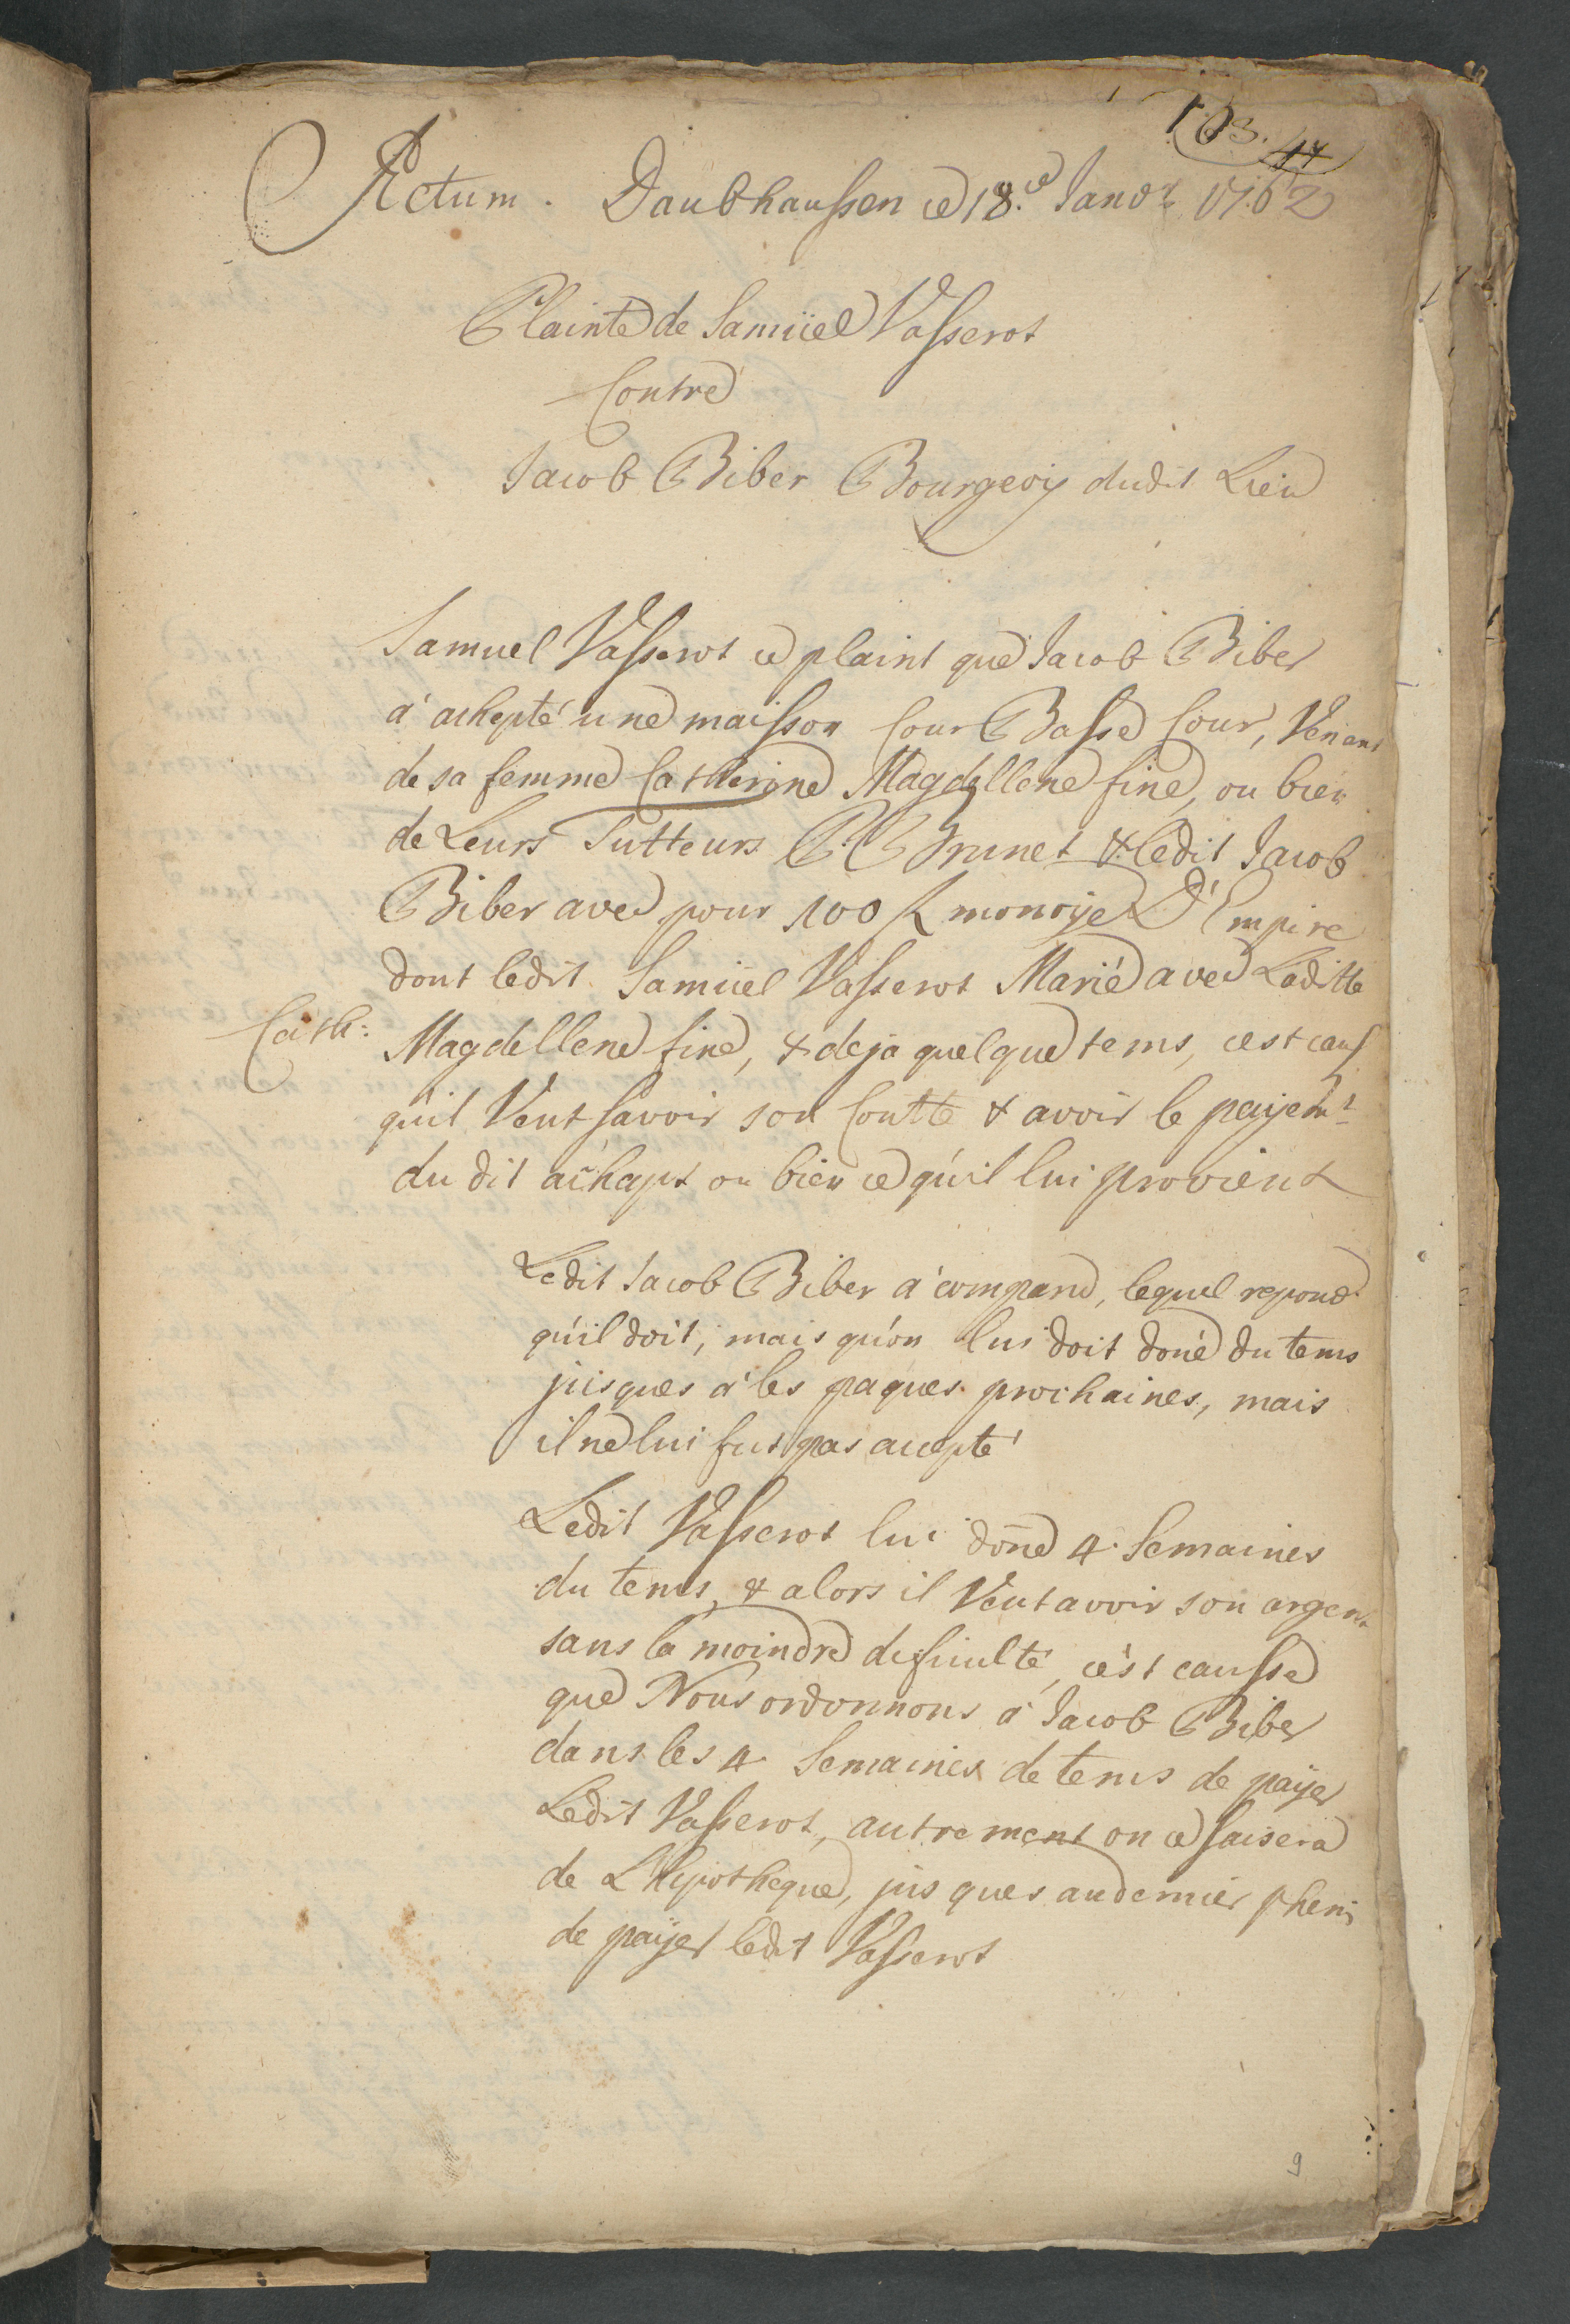 103. 44
Actum. Daubhaussen ce 18.ce Janvr 1762
Plainte de Samüel Vasserot
Contre
Jacob Biber Bourgeois dudit Lieu
Samuel Vasserot ce plaint que Jacob Biber
à achepté une maisson Cour Basse Cour, Venant
de sa femme Catherine Magdellene fine, ou bien
de Leurs Tutteurs P. Brunet & ledit Jacob
Biber avec pour 100 f monoye D'Empire
dont ledit Samüel Vasserot Marié avec Laditte
Cath: Magdellene fine, & deja quelque tems, cest caus
qu'il Veut savoir son Contte & avoir le payemt
du dit achapt ou bien ce qu'il lui provient
Ledit Jacob Biber à comparu, lequel repond
qu'il doit, mais qu'on lui doit doné du tems
jusques à les paques prochaines, mais
il ne lui fut pas accepté
Ledit Vasserot lui done 4. Semaines
du tems, & alors il Veut avoir son argent
sans la moindre dificulté, cèst causse
que Nous ordonnons à Jacob Biber
dans les 4. Semaines de tems de payer
Ledit Vasserot, autrement on ce saisera
de L'Hipotheque, jusques au dernier pheni
de payer ledit Vasserot
9